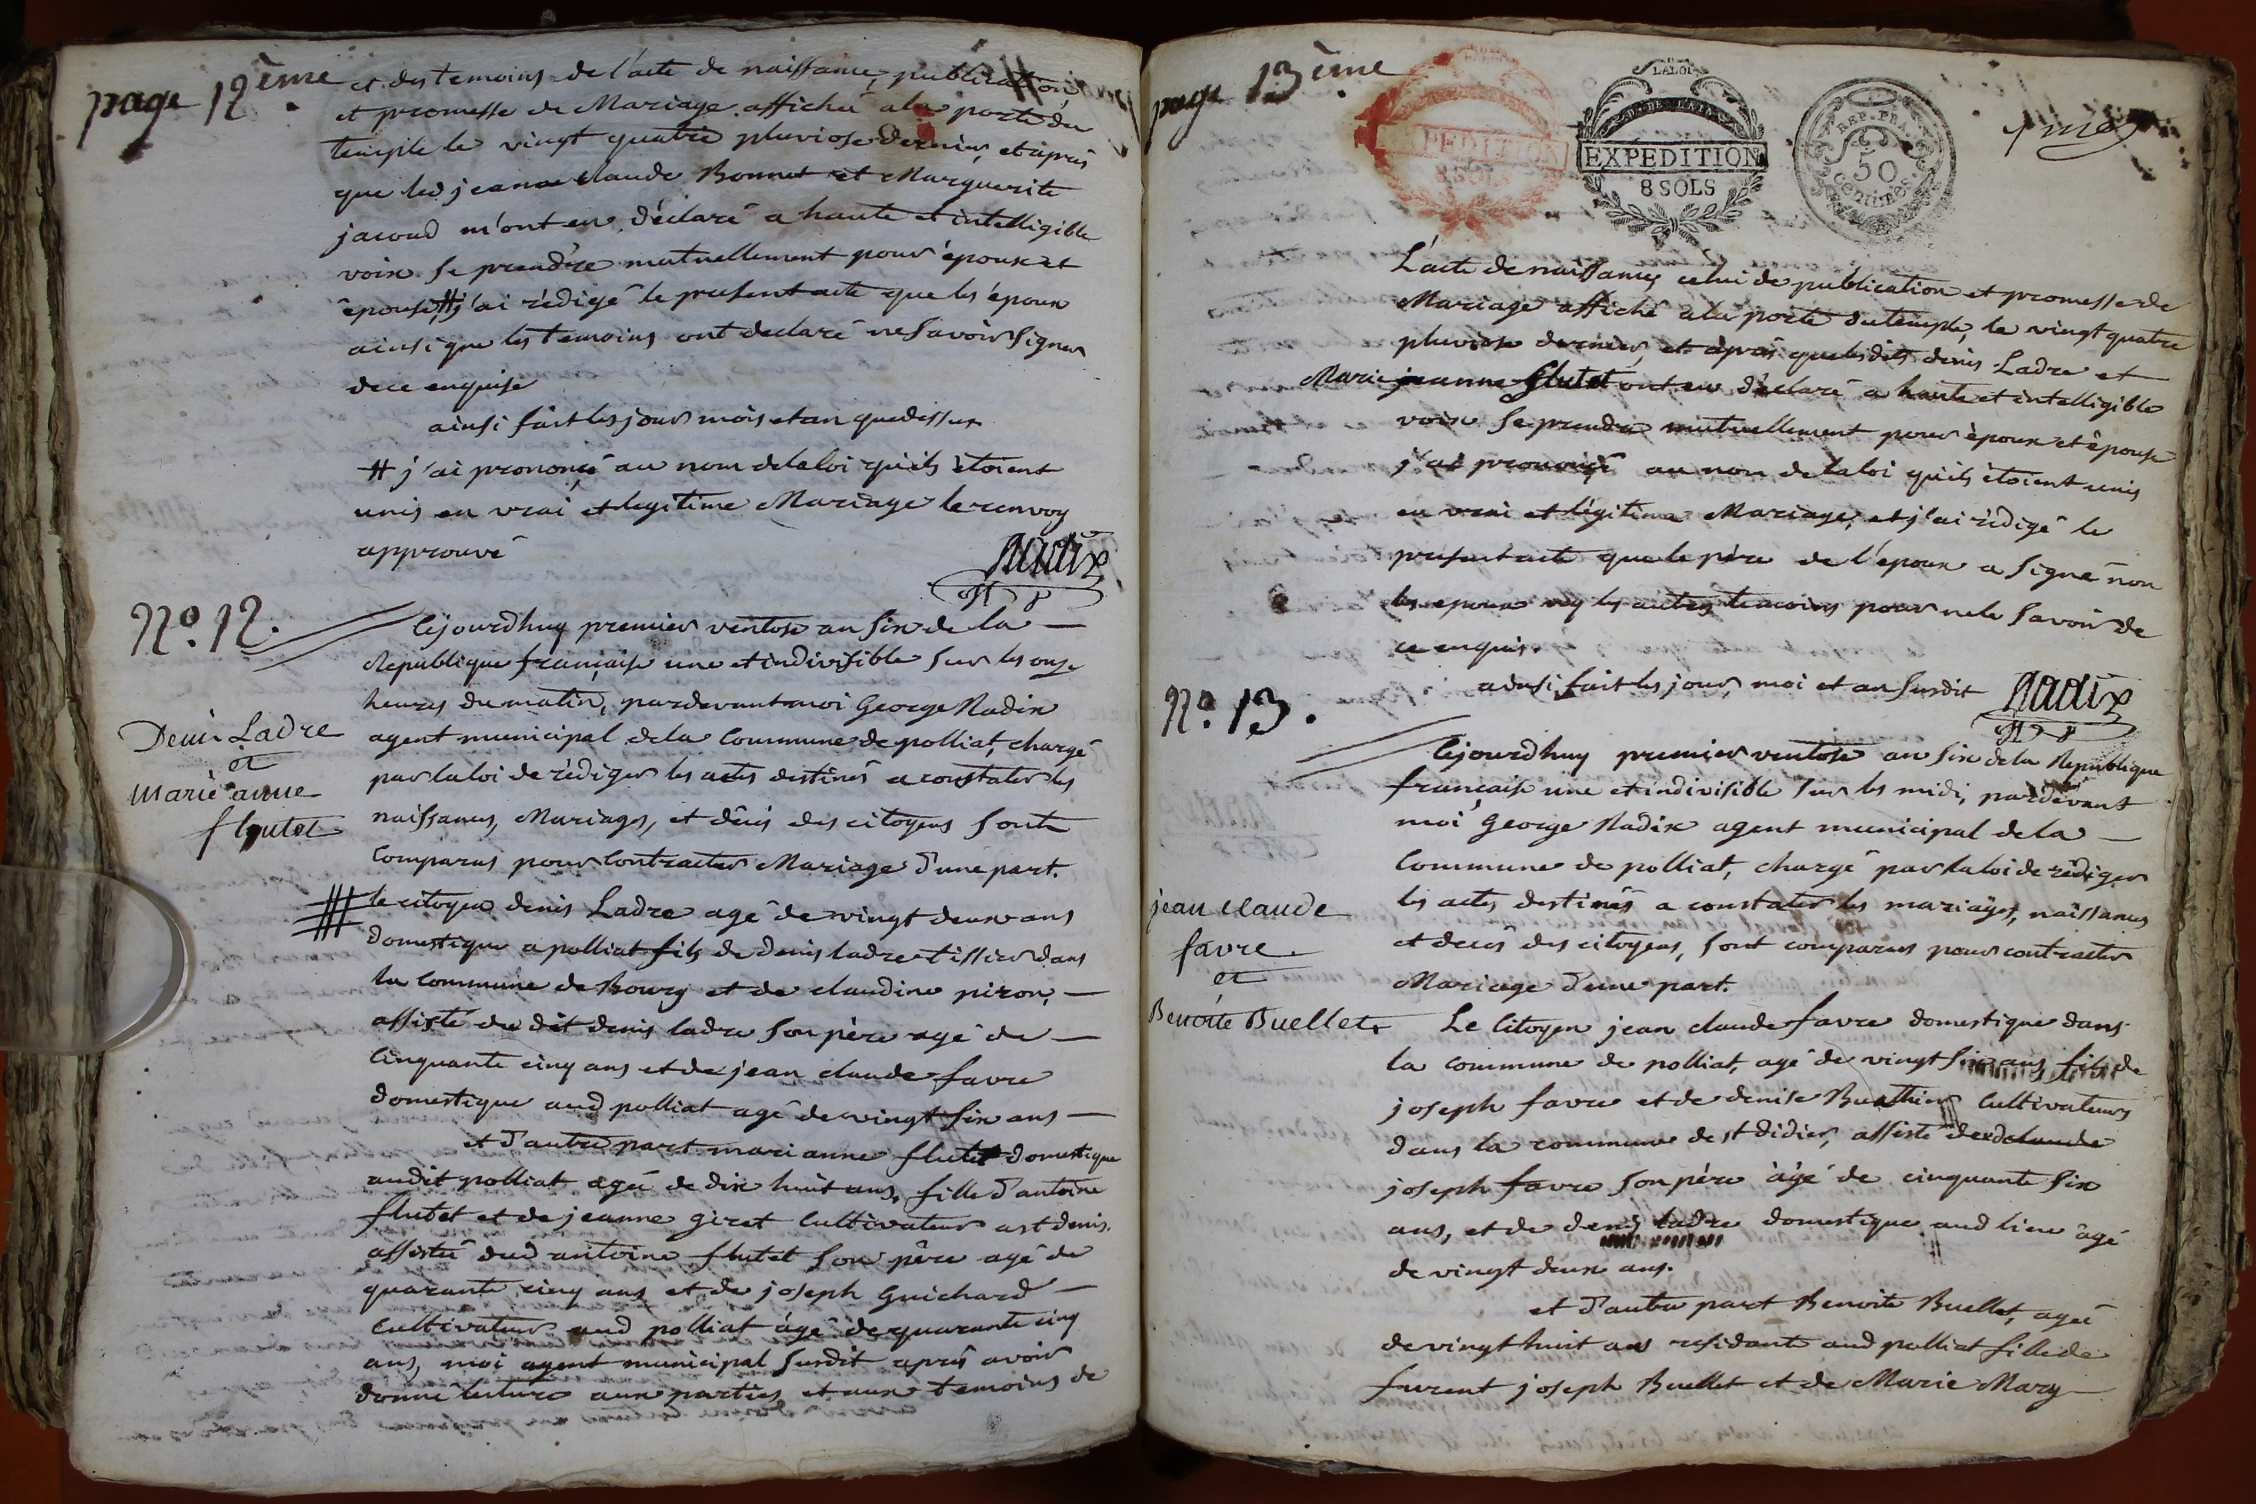 page 12ème
et des temoins de l'acte de naissance, publication
et promesse de Mariage affichée a la porte du
temple le vingt quatre pluviose dernier, et après
que led jean claude Bonnet et Marguerite
jacoud m'ont eu déclaré a haute et intelligible
voix se prendre mutuellement pour époux et
épouse, # j'ai rédigé le present acte que les époux
ainsi que les temoins ont declaré ne savoir signer
de ce enquise
ainsi fait les jour mois et an que dessus
# j'ai prononcé au nom de la loi qu'ils étoient
unis en vrai et legitime Mariage le renvoy
approuvé
Nadix
No. 12.
Denis Ladre
et
Marie anne
flutet
Cejourdhuy premier ventose an six de la
Republique française une et indivisible sur les onze
heures du matin, pardevant moi George Nadix
agent municipal de la Commune de polliat, chargé
par la loi de rédiger les actes destinés a constater les
naissances, Mariages, et décés des citoyens sont
Comparus pour Contracter Mariage d'une part.
le citoyen denis Ladre agé de vingt deux ans
domestique a polliat fils de denis ladre tissier dans
la Commune de Bourg et de claudine piron,
assisté du dit denis ladre son père agé de
Cinquante cinq ans et de jean claude favre
domestique aud polliat agé de vingt six ans
et d'autre part marianne flutet domestique
audit polliat agée de dix huit ans, fille d'antoine
flutet et de jeanne giret Cultivateur a st denis.
assistée dud antoine flutet son père agé de
quarante cinq ans et de joseph Guichard
Cultivateur aud polliat agé de quarante cinq
ans, moi agent municipal susdit après avoir
donné lecture aux parties et aux temoins de
page 13ème
LA LOI
EXPEDITION
8 SOLS
EXPEDITION
8 SOLS
REP. FRA.
50
centimes
L'acte de naissance, celui de publication et promesse de
Mariage affiché a la porte du temple, le vingt quatre
pluviose dernier, et après que lesdits denis Ladre et
Marie jeanne flutet ont eu déclaré a haute et intelligible
voix se prendre mutuellement pour époux et épouse
j'ai prononcé au nom de la loi qu'ils étoient unis
en vrai et légitime Mariage, et j'ai rédigé le
present acte que le père de l'époux a signé non
les epoux ny les autres temoins pour ne le savoir de
ce enquis.
ainsi fait les jour, moi et an susdit
Nadix
No. 13.
jean claude
favre
et
Benoite Buellet
Cejourdhuy premier ventose an six de la Republique
française une et indivisible sur les midi, pardevant
moi George Nadix agent municipal de la
Commune de polliat, chargé par la loi de rédiger
les actes destinés a constater les mariages, naissances
et decés des citoyens, sont comparus pour contracter
Mariage d'une part.
Le Citoyen jean claude favre domestique dans
la Commune de polliat, agé de vingt six ans fils de
joseph favre et de denise Buathier Cultivateurs
dans la commune de st didier, assisté de
joseph favre son père agé de cinquante six
ans, et de denis ladre domestique aud lieu agé
de vingt deux ans.
et d'autre part Benoite Buellet, agée
de vingt huit ans residante aud polliat fille de
furent joseph Buellet et de Marie Mary